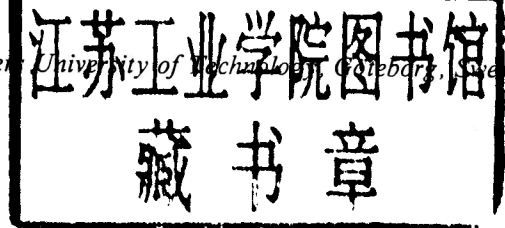 江苏工业学院图书馆
University of Technology, Göteborg,
藏书章